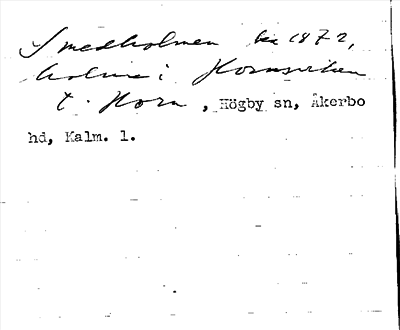 Smedholmen ka 1872,
holme i Hornsviken
t. Horn, Högby sn, Åkerbo
hd, Kalm. l.